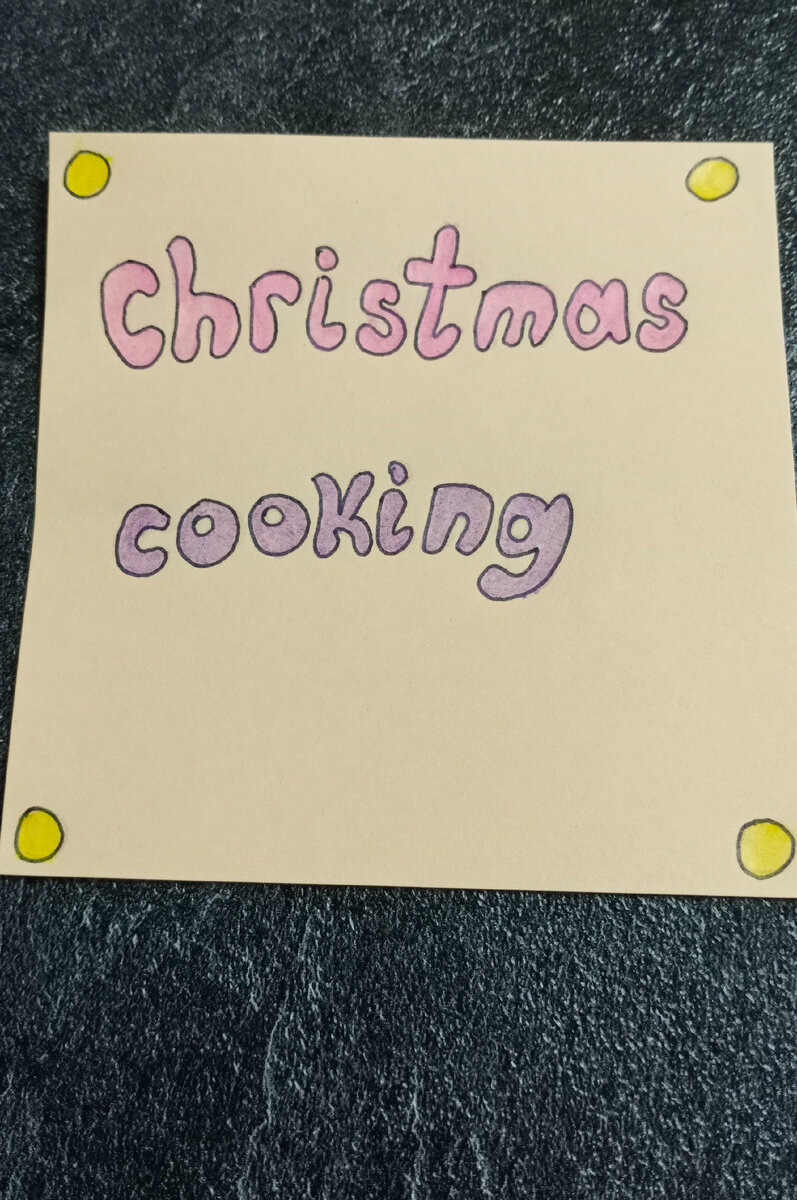 Christmas
cooking